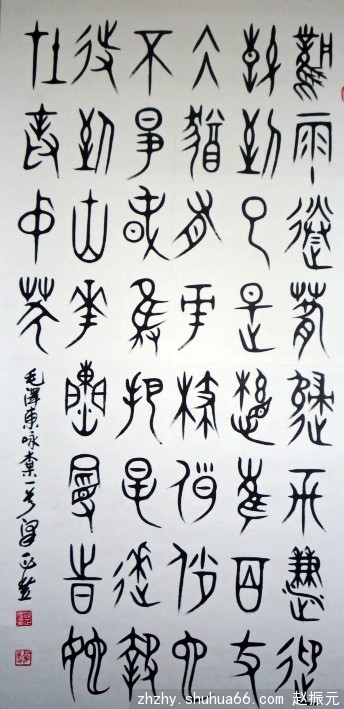 風雨送春歸飛雪迎
春到已是懸崖百丈
冰猶有花枝俏俏也
不爭春隻把春來報
待到山花爛漫時她
在叢中笑
毛澤東咏梅一首
zhzhy.shuhua66.com 赵振元